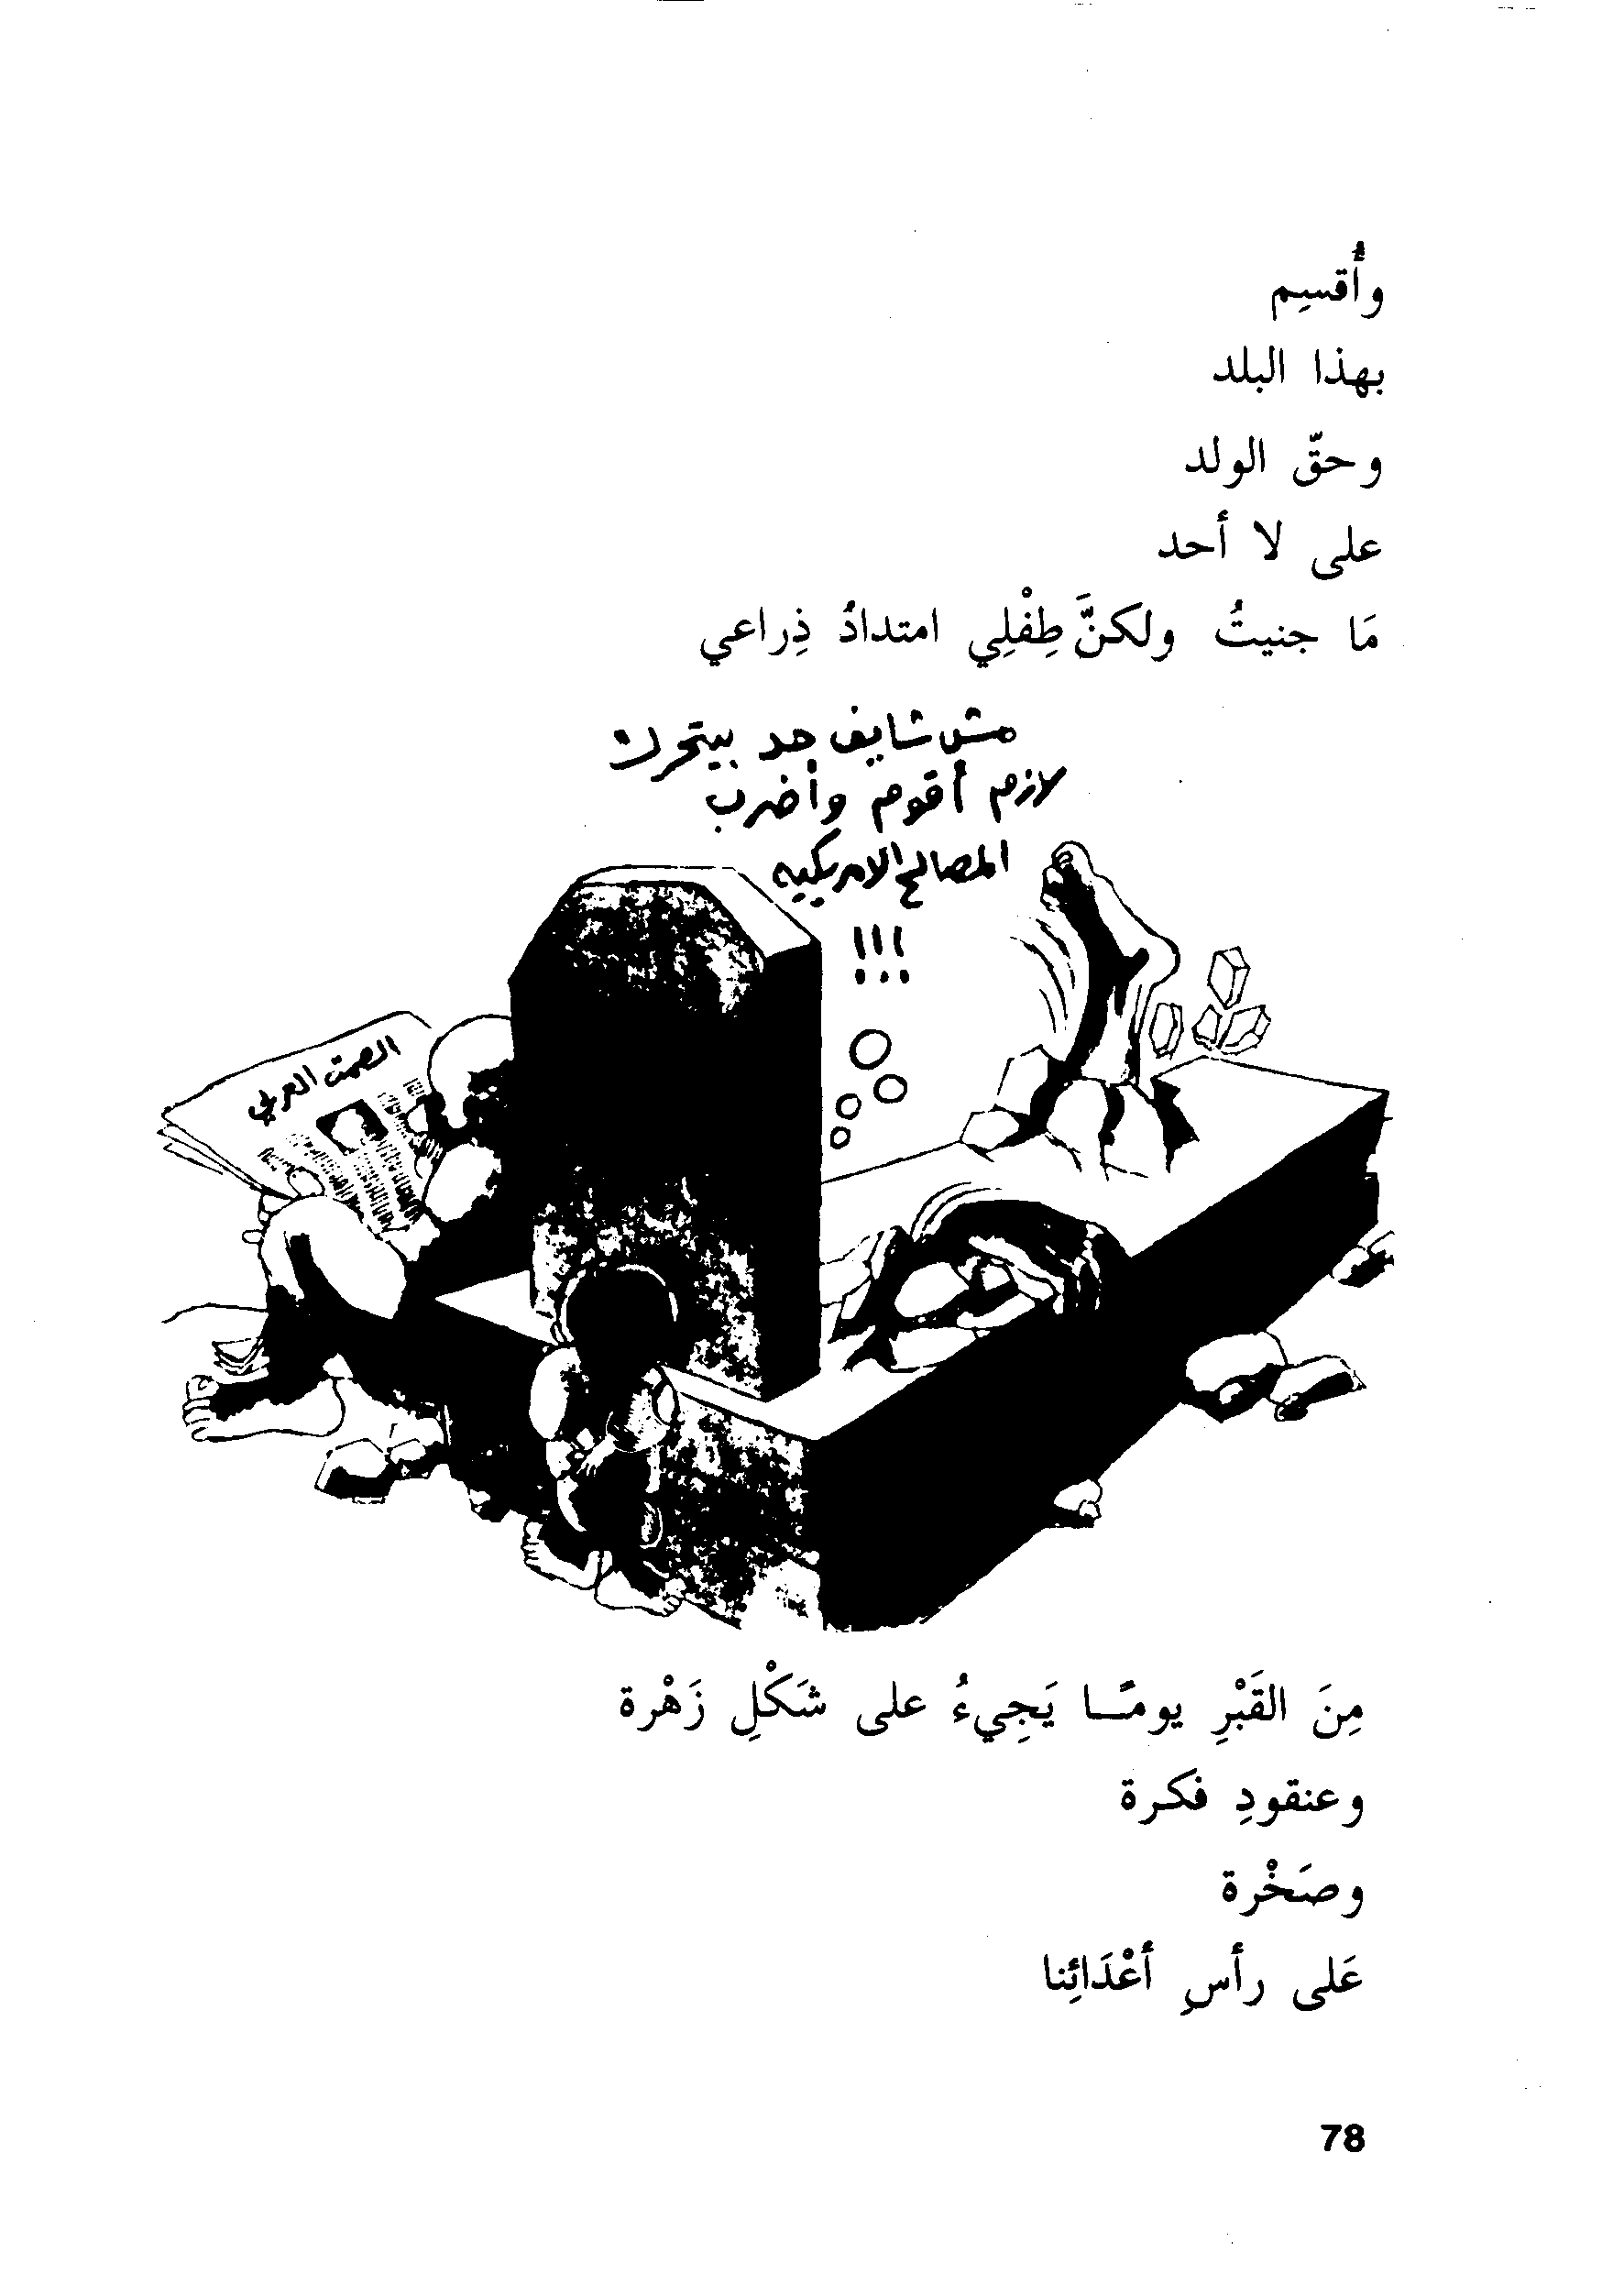 وأُقسِم
بهذا البلد
وحقّ الولد
على لا أحد
مَا جنيتُ ولكنَّ طِفْلِي امتدادُ ذِراعي
مش شايف حد بيتحرك
لازم أقوم وأضرب
المصالح الامريكيه
!!!
الصمت العربي
مِنَ القَبْرِ يومًـا يَجِيءُ على شَكْلِ زَهْرة
وعنقودِ فكرة
وصَخْرة
عَلى رأسِ أعْدَائِنا
78